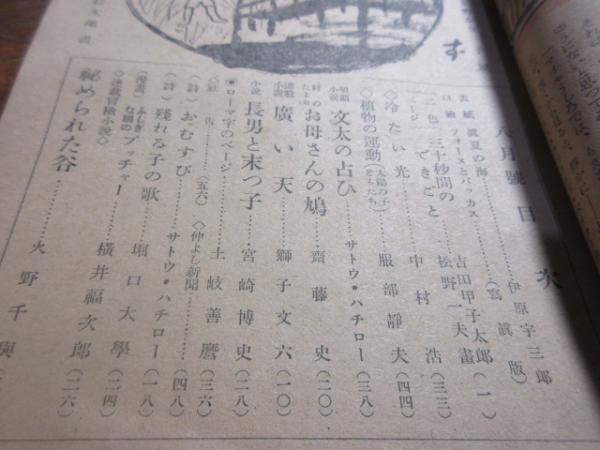 八月號目次
表紙 眞夏の海……伊原宇三郎
口繪 フォーヌとバッカス……(寫眞版)
二色ページ 三十秒間のできごと……吉田甲子太郎 松野一夫畫(一)
冷たい光……中村浩(三三)
◇植物の運動(太陽の子どもたち)……服部靜夫(四四)
明朗小説 文太の占ひ……サトウ・ハチロー(三八)
村のたより お母さんの鳩……齋藤史(二〇)
連載小説 廣い天……獅子文六(一〇)
小説 長男と末っ子……宮崎博史(二八)
●ローマ字のページ……土岐善麿(三六)
◇社告……(五六) ◇仲よし新聞……(四八)
(詩) おむすび……サトウ・ハチロー(一八)
(詩) 殘れる子の歌……堀口大學(二四)
(漫畫) ふしぎな國のプッチャー……横井福次郎(二六)
◇連載冒險小説◇
祕められた谷……火野千